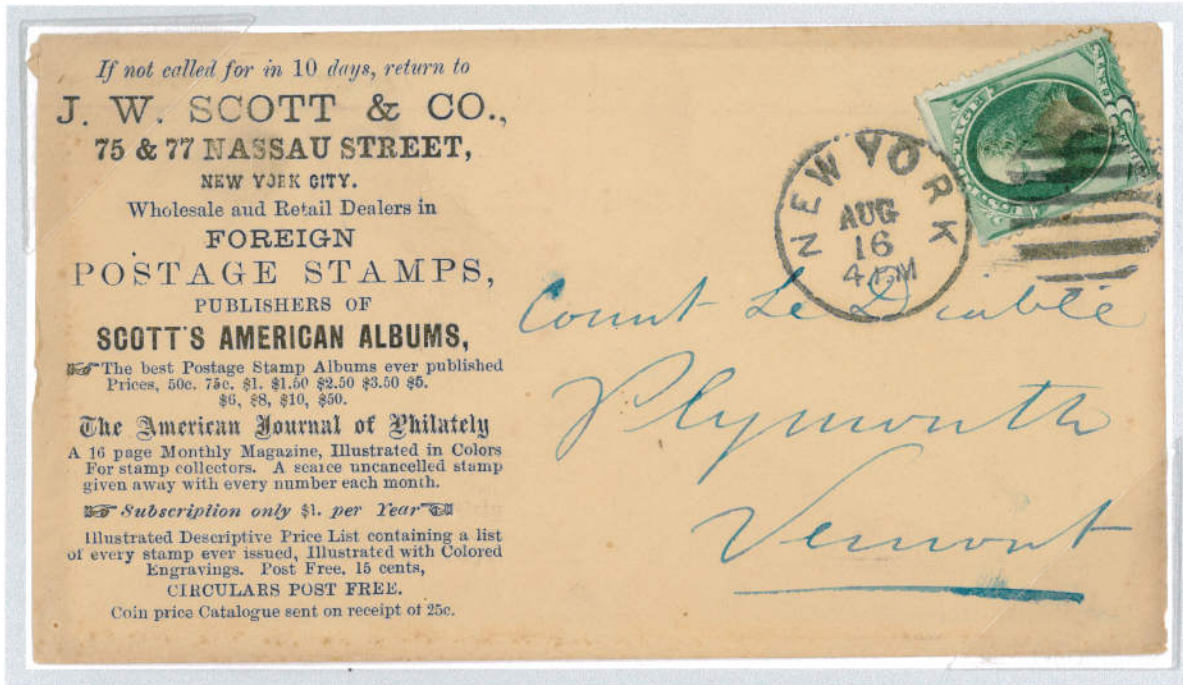 If not called for in 10 days, return to
J. W. SCOTT & CO.,
75 & 77 NASSAU STREET,
NEW YORK CITY.
Wholesale and Retail Dealers in
FOREIGN
POSTAGE STAMPS,
PUBLISHERS OF
SCOTT'S AMERICAN ALBUMS,
The best Postage Stamp Albums ever published
Prices, 50c. 75c. $1. $1.50 $2.50 $3.50 $5.
$6, $8, $10, $50.
The American Journal of Philately
A 16 page Monthly Magazine, Illustrated in Colors
For stamp collectors. A scarce uncancelled stamp
given away with every number each month.
Subscription only $1. per Year
Illustrated Descriptive Price List containing a list
of every stamp ever issued, Illustrated with Colored
Engravings. Post Free. 15 cents,
CIRCULARS POST FREE.
Coin price Catalogue sent on receipt of 25c.
NEW YORK
AUG
16
4 PM
Count Le Diable
Plymouth
Vermont